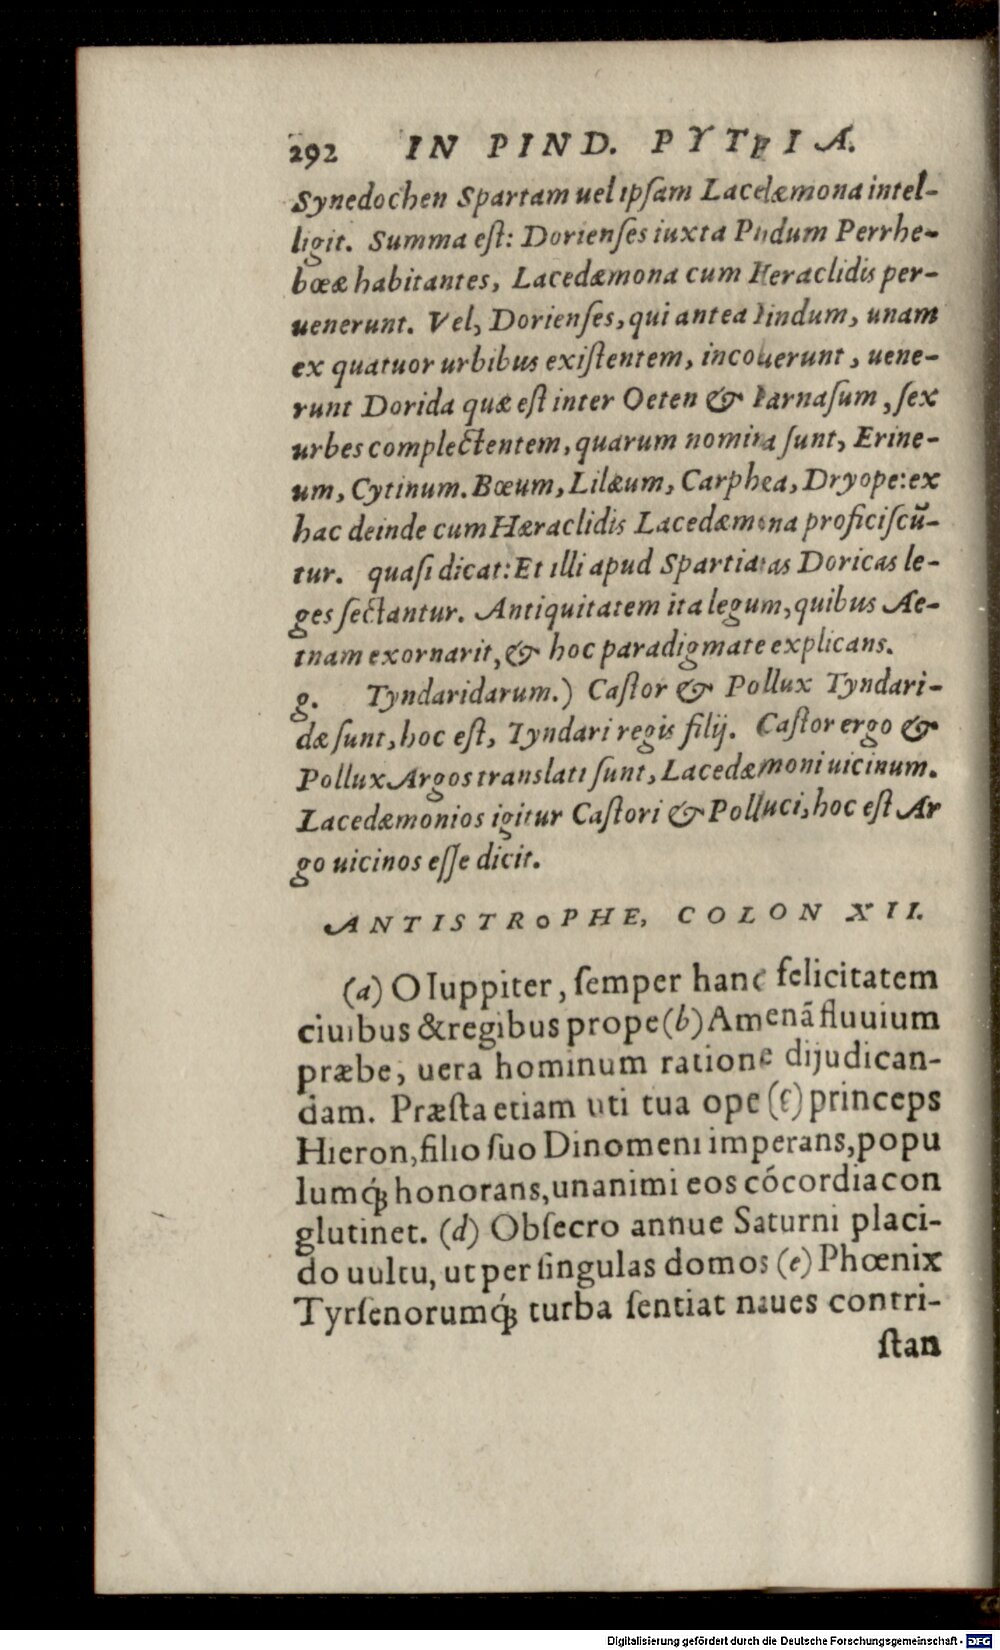 292 IN PIND. PYTHIA.
Synedochen Spartam uel ipſam Lacedæmona intel-
ligit. Summa eſt: Dorienſes iuxta Pindum Perrhe-
bœæ habitantes, Lacedæmona cum Heraclidis per-
uenerunt. Vel, Dorienſes, qui antea Pindum, unam
ex quatuor urbibus exiſtentem, incoluerunt, uene-
runt Dorida quæ eſt inter Oeten & Parnaſum, ſex
urbes complectentem, quarum nomina ſunt, Erine-
um, Cytinum. Bœum, Lilæum, Carphea, Dryope: ex
hac deinde cum Hæraclidis Lacedæmona proficiſcū-
tur. quaſi dicat: Et illi apud Spartiatas Doricas le-
ges ſectantur. Antiquitatem ita legum, quibus Ae-
tnam exornarit, & hoc paradigmate explicans.
g. Tyndaridarum.) Caſtor & Pollux Tyndari-
dæ ſunt, hoc eſt, Tyndari regis filij. Caſtor ergo &
Pollux Argos translati ſunt, Lacedæmoni uicinum.
Lacedæmonios igitur Caſtori & Polluci, hoc eſt Ar
go uicinos eſſe dicit.
ANTISTROPHE, COLON XII.
(a) O Iuppiter, ſemper hanc felicitatem
ciuibus & regibus prope (b) Amenā fluuium
præbe, uera hominum ratione dijudican-
dam. Præſta etiam uti tua ope (c) princeps
Hieron, filio ſuo Dinomeni imperans, popu
lumq́ꝫ honorans, unanimi eos cócordia con
glutinet. (d) Obſecro annue Saturni placi-
do uultu, ut per ſingulas domos (e) Phœnix
Tyrſenorumq́ꝫ turba ſentiat naues contri-
ſtan
Digitalisierung gefördert durch die Deutsche Forschungsgemeinschaft - DFG